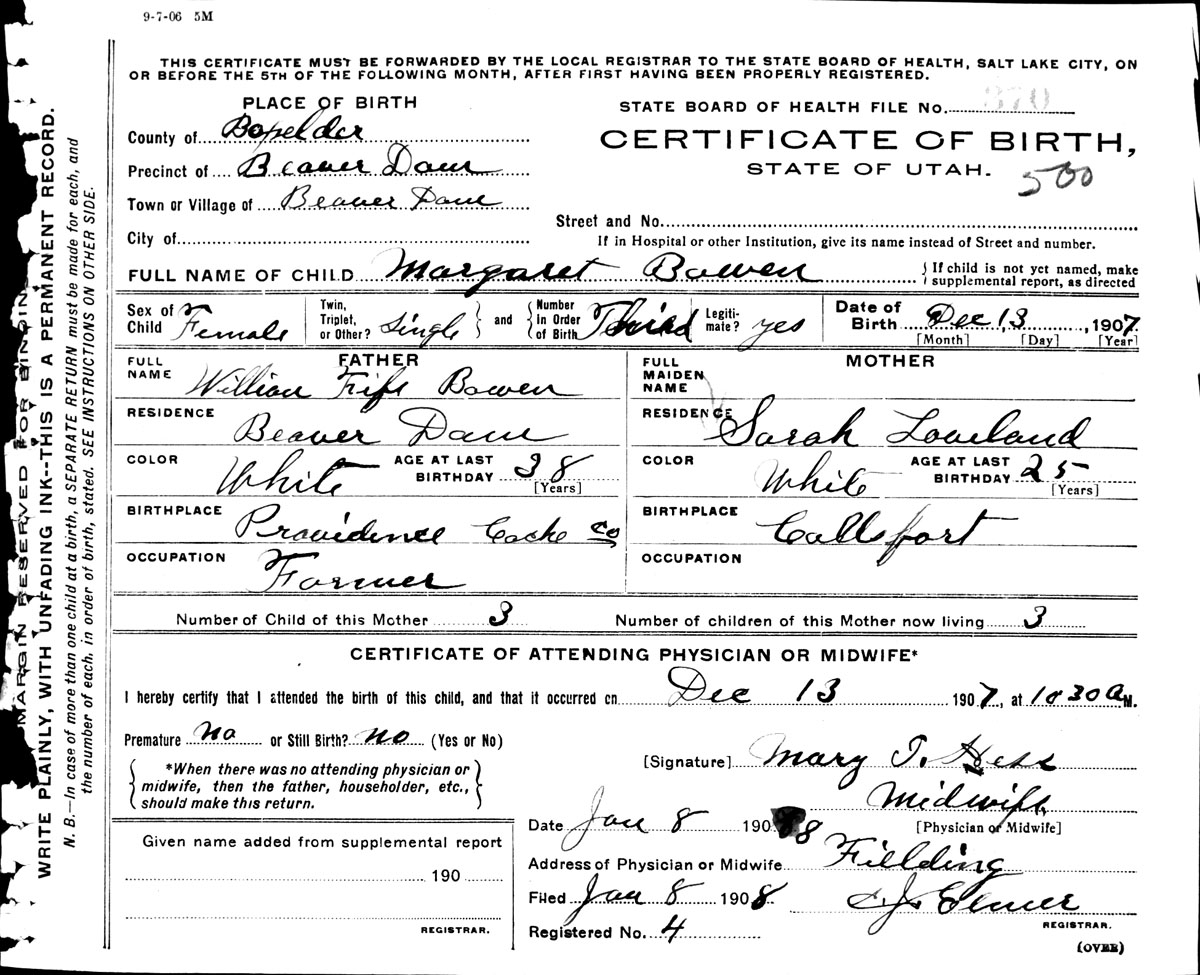 9-7-06 5M
THIS CERTIFICATE MUST BE FORWARDED BY THE LOCAL REGISTRAR TO THE STATE BOARD OF HEALTH, SALT LAKE CITY, ON
OR BEFORE THE 5TH OF THE FOLLOWING MONTH, AFTER FIRST HAVING BEEN PROPERLY REGISTERED.
PLACE OF BIRTH
County of Boxelder
Precinct of Beaver Dam
Town or Village of Beaver Dam
City of
STATE BOARD OF HEALTH FILE No. 370
CERTIFICATE OF BIRTH,
STATE OF UTAH.
500
Street and No.
If in Hospital or other Institution, give its name instead of Street and number.
FULL NAME OF CHILD Margaret Bowen
If child is not yet named, make
supplemental report, as directed
Sex of Child Female
Twin, Triplet, or Other? Single
and
Number In Order of Birth Third
Legiti-mate? yes
Date of Birth Dec 13, 1907.
[Month] [Day] [Year]
FATHER
FULL NAME William Bowen
RESIDENCE Beaver Dam
COLOR White AGE AT LAST BIRTHDAY 38
[Years]
BIRTHPLACE Providence Cache Co
OCCUPATION Farmer
MOTHER
FULL MAIDEN NAME
RESIDENCE Sarah Loveland
COLOR White AGE AT LAST BIRTHDAY 25
[Years]
BIRTHPLACE Callsfort
OCCUPATION
Number of Child of this Mother 3 Number of children of this Mother now living 3
CERTIFICATE OF ATTENDING PHYSICIAN OR MIDWIFE*
I hereby certify that I attended the birth of this child, and that it occurred on Dec 13 1907, at 10 30 a M.
Premature no or Still Birth? no (Yes or No)
*When there was no attending physician or
midwife, then the father, householder, etc.,
should make this return.
[Signature] Mary T. Hess
Midwife
[Physician or Midwife]
Date Jan 8 1908
Address of Physician or Midwife Fielding
Filed Jan 8 1908
REGISTRAR.
Registered No. 4
(OVER)
Given name added from supplemental report
190
REGISTRAR.
MARGIN RESERVED FOR BINDING
WRITE PLAINLY, WITH UNFADING INK--THIS IS A PERMANENT RECORD.
N. B.—In case of more than one child at a birth, a SEPARATE RETURN must be made for each, and
the number of each, in order of birth, stated. SEE INSTRUCTIONS ON OTHER SIDE.